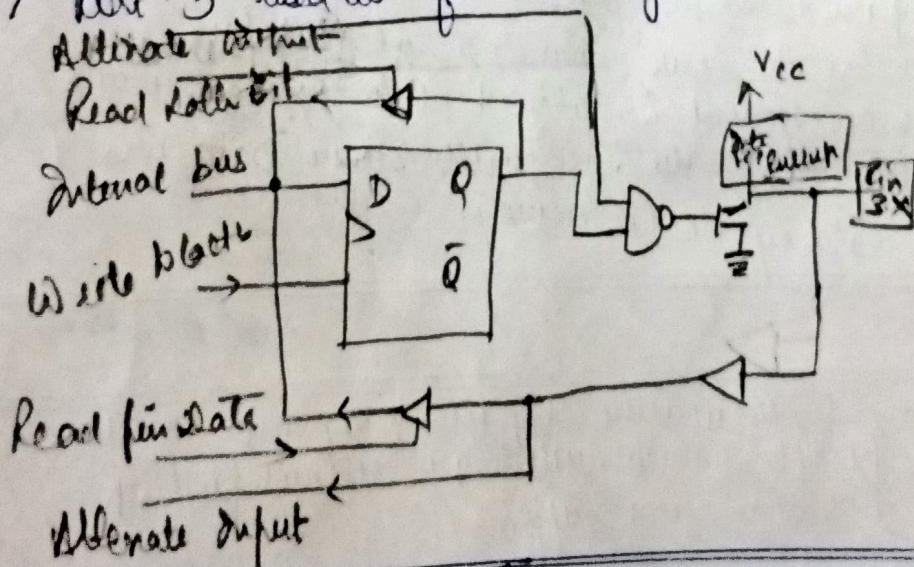 Port 3 used as
Alternate output
Read Latch bit
Internal bus
Write to latch
D Q
Q̅
Vcc
Pullup
Pin
3X
Read pin Data
Alternate Input